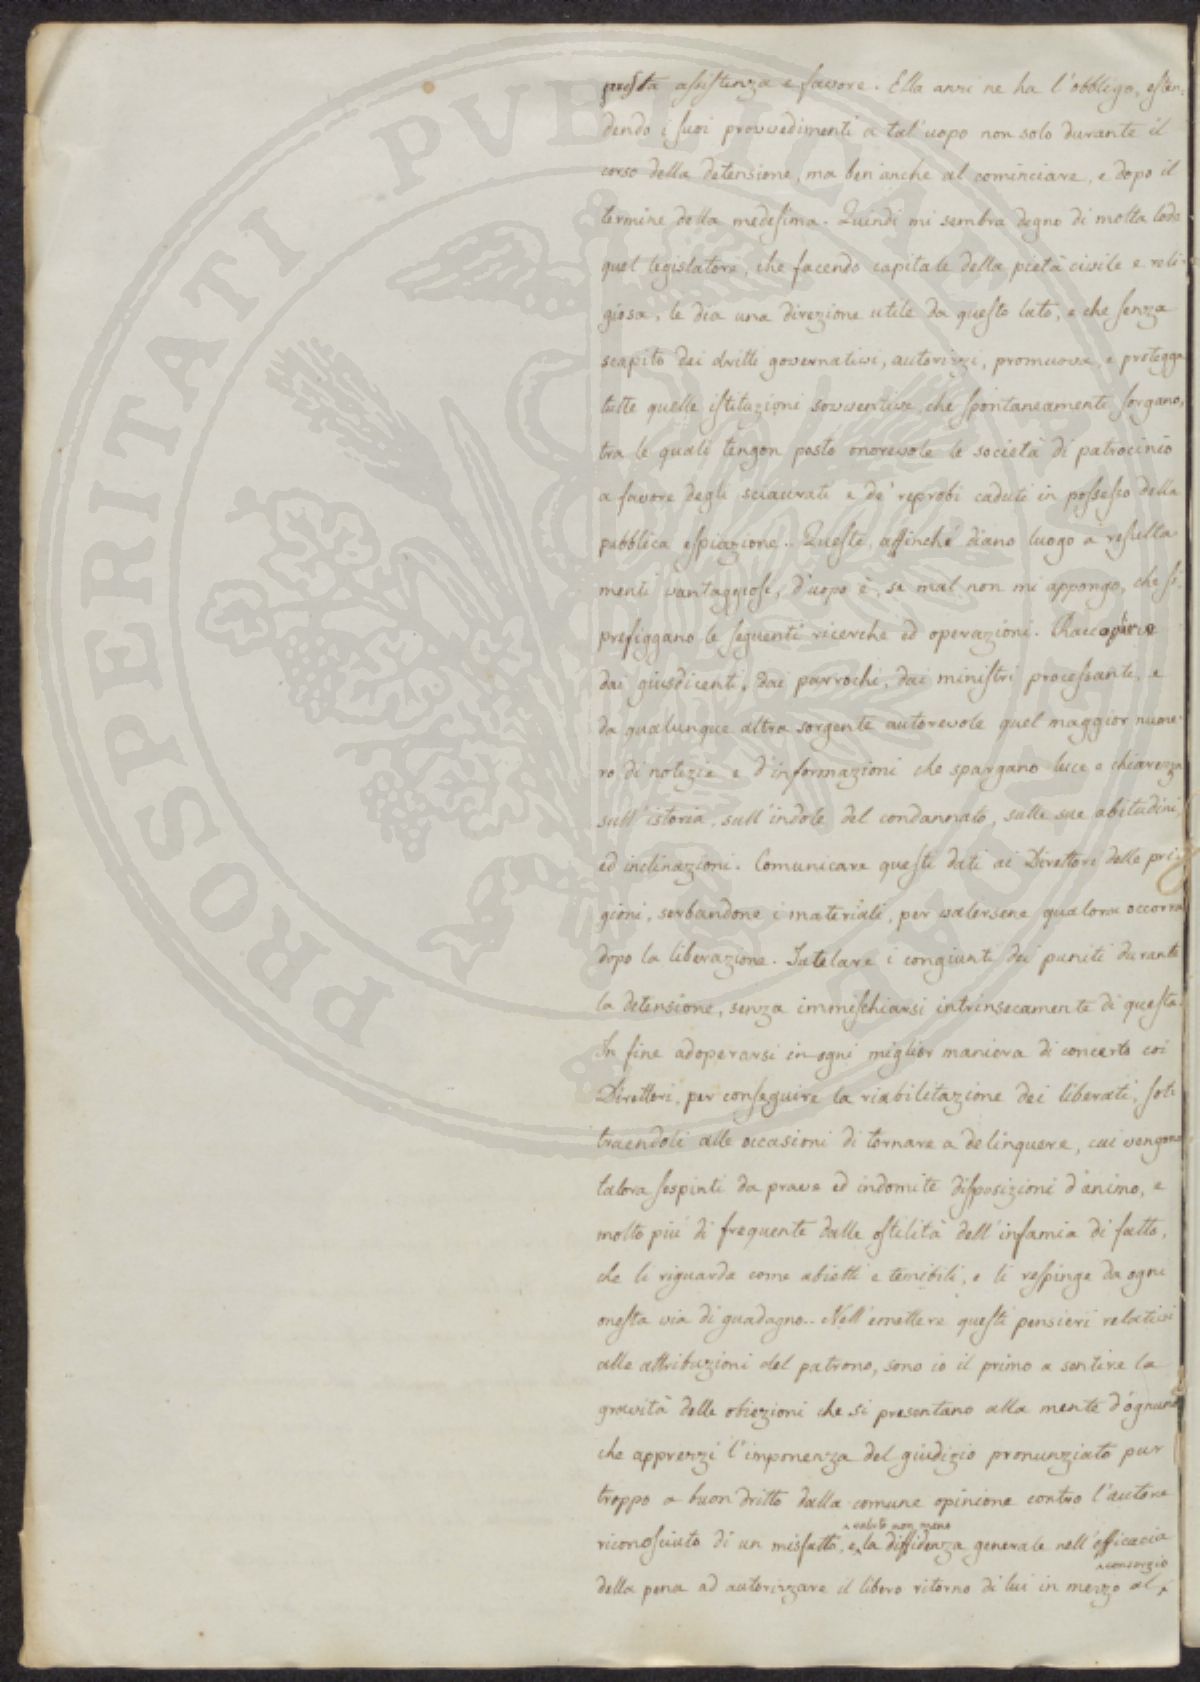 presta assistenza e favore. Ella anzi ne ha l'obbligo, esten=
dendo i suoi provvedimenti a tal'uopo non solo durante il
corso della detensione, ma ben anche al cominciare, e dopo il
termine della medesima. Quindi mi sembra degno di molta lode
quel legislatore, che facendo capitale della pietà civile e reli-
giosa, le dia una direzione utile da questo lato, e che senza
scapito dei dritti governativi, autorizzi, promuova, e protegga
tutte quelle istituzioni sovventive, che spontaneamente sorgano,
tra le quali tengon posto onorevole le società di patrocinio
a favore degli sciaurati e de' reprobi caduti in possesso della
pubblica espiazione. Queste, affinché diano luogo a resulta
menti vantaggiosi, d'uopo è, se mal non mi appongo, che si
prefiggano le seguenti ricerche ed operazioni. Raccogliere
dai giusdicenti, dai parrochi, dai ministri processanti, e
da qualunque altra sorgente autorevole quel maggior nume-
ro di notizie e d'informazioni che spargano luce e chiarezza
sull'istoria, sull'indole del condannato, sulle sue abitudini,
ed inclinazioni. Comunicare questi dati ai Direttori delle pri
gioni, serbandone i materiali, per valersene qualora occorra
dopo la liberazione. Tutelare i congiunti dei puniti durante
la detensione, senza immischiarsi intrinsecamente di questa.
In fine adoperarsi in ogni miglior maniera di concerto coi
Direttori, per conseguire la riabilitazione dei liberati, sot
traendoli alle occasioni di tornare a delinquere, cui vengono
talora sospinti da prave ed indomite disposizioni d'animo, e
molto più di frequente dalle ostilità dell'infamia di fatto,
che li riguarda come abietti e temibili, e li respinge da ogni
onesta via di guadagno.. Nell'emettere questi pensieri relativi
alle attribuzioni del patrono, sono io il primo a sentire la
gravità delle obiezioni che si presentano alla mente d'ognuno
che apprezzi l'imponenza del giudizio pronunziato pur
troppo a buon dritto dalla comune opinione contro l'autore
valuto non meno
riconosciuto di un misfatto, e la diffidenza generale nell'efficacia
consorzio
della pena ad autorizzare il libero ritorno di lui in mezzo al
PROSPERITATI PVBLICAE AVGENDAE